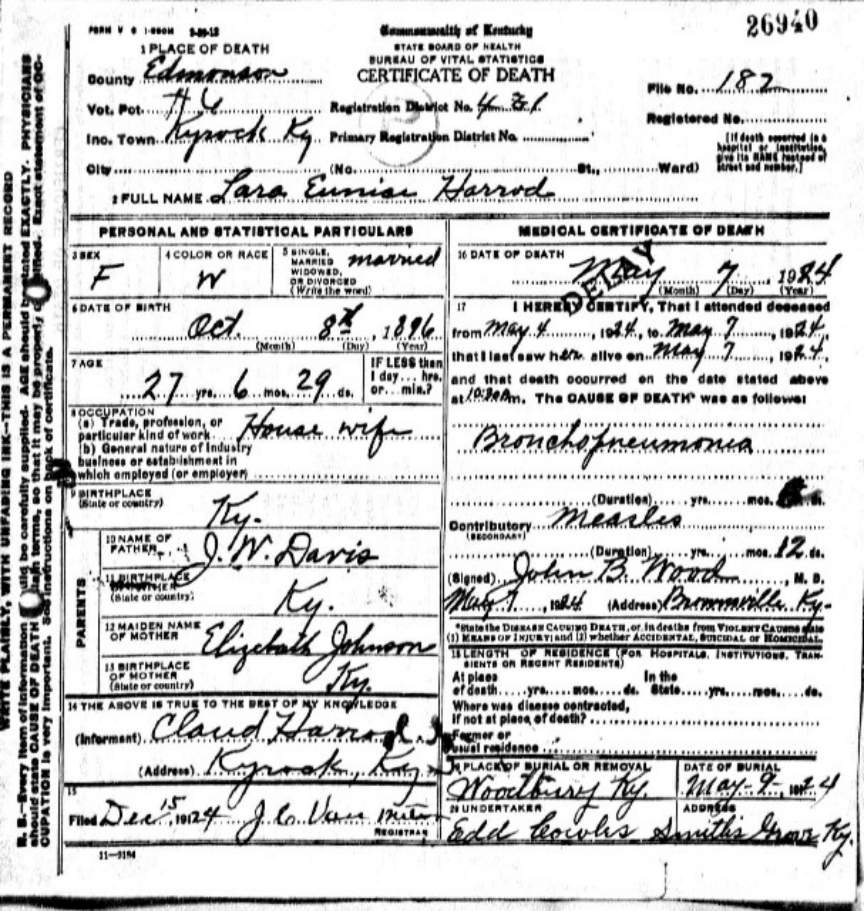 FORM V S 1-350M 3-20-12
Commonwealth of Kentucky
26940
STATE BOARD OF HEALTH
BUREAU OF VITAL STATISTICS
CERTIFICATE OF DEATH
1 PLACE OF DEATH
County Edmonson
File No. 182
Vot. Pct #6 Registration District No. 431
Registered No.
Inc. Town Kyrock Ky Primary Registration District No.
[If death occurred in a hospital or institution, give its NAME instead of street and number.]
City (No. St., Ward)
2 FULL NAME Sara Eunice Harrod
PERSONAL AND STATISTICAL PARTICULARS
3 SEX F
4 COLOR OR RACE W
5 SINGLE, MARRIED WIDOWED, OR DIVORCED (Write the word) married
6 DATE OF BIRTH
Oct. 8th, 1896
(Month) (Day) (Year)
7 AGE
27 yrs. 6 mos. 29 ds.
IF LESS than 1 day... hrs. or... min.?
8 OCCUPATION
(a) Trade, profession, or particular kind of work House wife
(b) General nature of industry business or establishment in which employed (or employer)
9 BIRTHPLACE
(State or country) Ky.
PARENTS
10 NAME OF FATHER J. W. Davis
11 BIRTHPLACE OF FATHER
(State or country) Ky.
12 MAIDEN NAME OF MOTHER Elizebath Johnson
13 BIRTHPLACE OF MOTHER
(State or country) Ky.
14 THE ABOVE IS TRUE TO THE BEST OF MY KNOWLEDGE
(Informant) Claud Harrod
(Address) Kyrock, Ky
15
Filed Dec 15, 1924 J. C. Van Meter
REGISTRAR
11-3184
MEDICAL CERTIFICATE OF DEATH
16 DATE OF DEATH
May 7, 1924
(Month) (Day) (Year)
DELAY
17 I HEREBY CERTIFY, That I attended deceased
from May 4, 1924, to May 7, 1924,
that I last saw her alive on May 7, 1924,
and that death occurred on the date stated above
at 10:30 m. The CAUSE OF DEATH* was as follows:
Bronchopneumonia
(Duration) yrs. mos. ds.
Contributory Measles
(SECONDARY)
(Duration) yrs. mos. 12 ds.
(Signed) John B. Wood, M. D.
May 7, 1924 (Address) Brownsville Ky.
*State the DISEASE CAUSING DEATH, or, in deaths from VIOLENT CAUSES state
(1) MEANS OF INJURY; and (2) whether ACCIDENTAL, SUICIDAL or HOMICIDAL.
18 LENGTH OF RESIDENCE (FOR HOSPITALS, INSTITUTIONS, TRANSIENTS OR RECENT RESIDENTS)
At place of death yrs. mos. ds. In the State yrs. mos. ds.
Where was disease contracted,
if not at place of death?
Former or
usual residence
19 PLACE OF BURIAL OR REMOVAL
Woodbury Ky.
DATE OF BURIAL
May-9-, 1924
20 UNDERTAKER
Edd Cowles
ADDRESS
Smiths Grove Ky.
WRITE PLAINLY, WITH UNFADING INK--THIS IS A PERMANENT RECORD
N. B.-Every item of information should be carefully supplied. AGE should be stated EXACTLY. PHYSICIANS
should state CAUSE OF DEATH in plain terms, so that it may be properly classified. Exact statement of OC-
CUPATION is very important. See instructions on back of certificate.